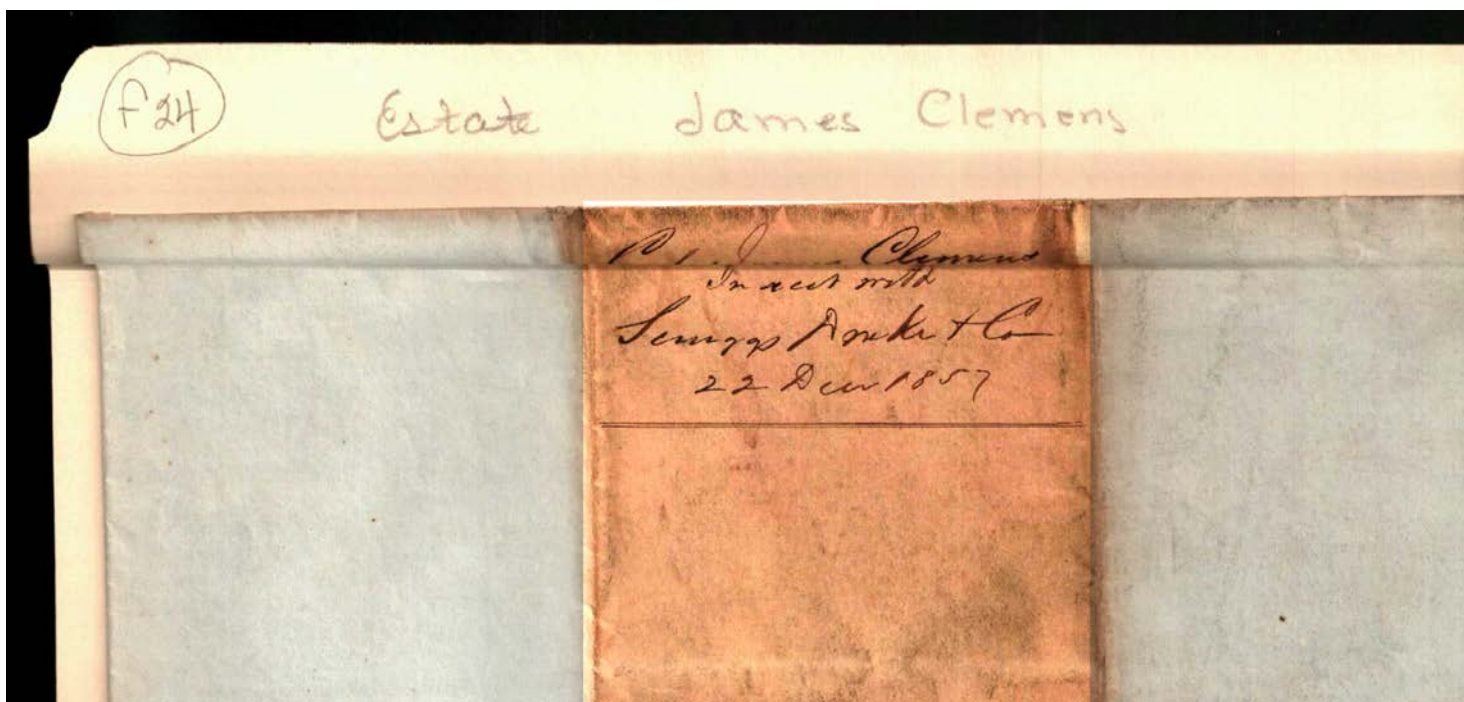 f24 Estate James Clemens
Clemens
In acct with
Scruggs Drake & Co
22 Decr 1857